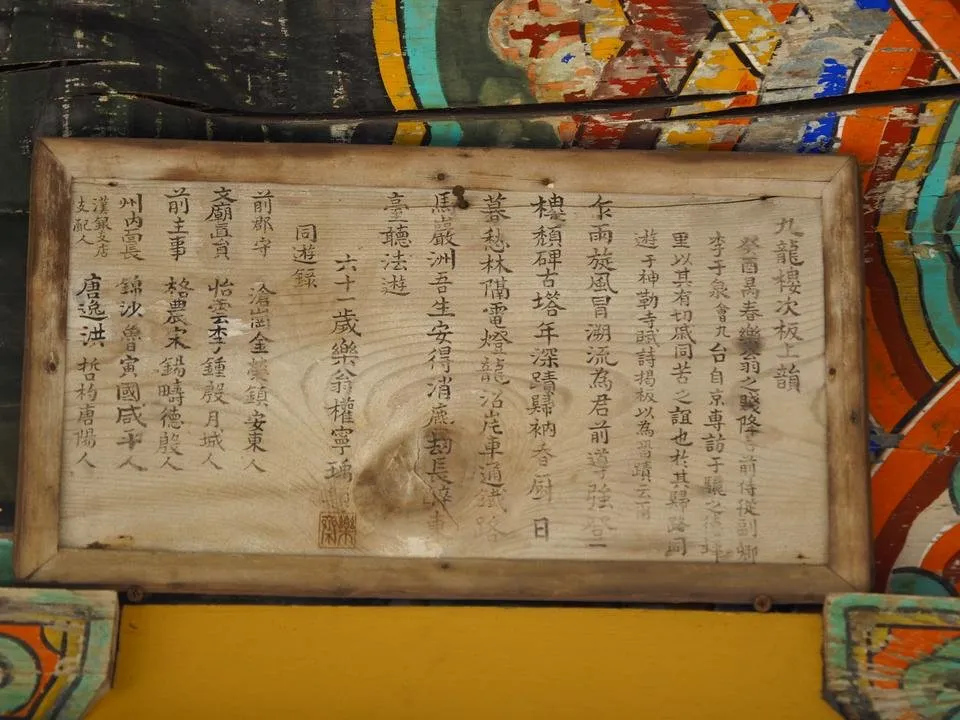 九龍樓次板上韻
癸酉暮春樂翁之賤降 前侍從副卿
李于泉會九台自京專訪于驪之
里以其有切戚同苦之誼也於其歸路同
遊于神勒寺賦詩揭板以為 蹟云爾
乍雨旋風冒溯流為君前導強登一
樓頹碑古塔年深蹟歸衲香厨日
暮愁林隔電燈龍沼岸車通鐵路
馬巖洲吾生安得消塵劫長 東
臺聽法遊
六十一歲樂翁權寧瑀
樂齋
同遊錄
前郡守 滄崗金 鎮安東人
文廟直員 怡雲李鍾殷月城人
前主事 格農宋錫疇德殷人
州內面長 錦沙魯寅國咸平人
漢銀支店支配人 唐逸洪哲杓唐陽人